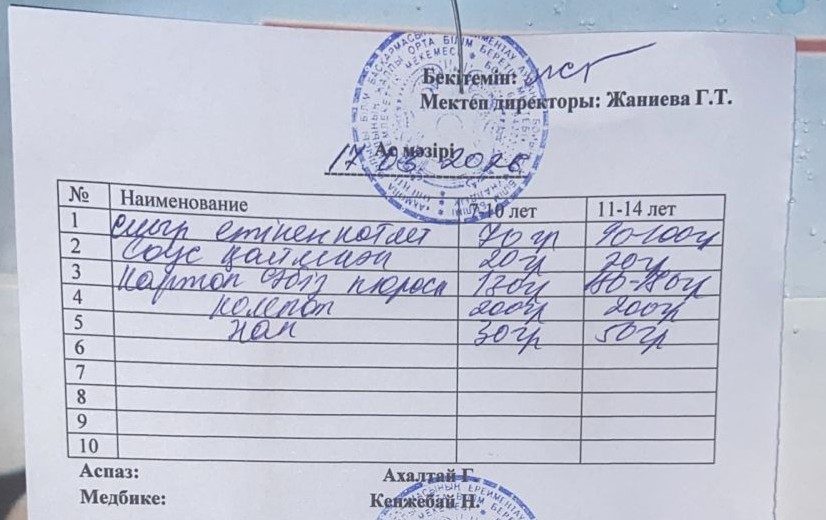 Бекітемін:
Мектеп директоры: Жаниева Г.Т.
Ас мәзірі
17 03 2026
№ Наименование 7-10 лет 11-14 лет
1 сиыр етінен котлет 70 гр 90-100гр
2 Соус қаймақ 20гр 20гр
3 Картоп езбе пюреси 130гр 150-180гр
4 компот 200гр 200гр
5 нан 30гр 50гр
6
7
8
9
10
Аспаз: Ахалтай Г.
Медбике: Кенжебай Н.